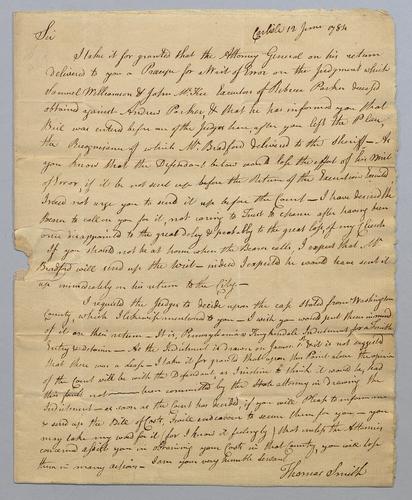 Carlisle 12 June 1784
Sir
I take it for granted that the Attorney General on his return
delivered to you a Precipe for a Writ of Error on the Judgment which
Samuel Williamson & John McKee Executors of Rebecca Parker deceased
obtained against Andrew Parker, & that he has informed you that
Bail was entered before one of the Judges here, after you left the Place,
the Recognizance of which Mr. Bradford delivered to the Sheriff — As
you know that the Defendant below would lose the effect of his Writ
of Error, if it be not sent up before the Return of the Execution, I need
not urge you to send it up before the Court — I have desired the
bearer to call on you for it, not caring to Trust to chance after having been
once disappointed to the great delay & probably to the great loss of my Clients
If you should not be at home when the Bearer calls, I expect that Mr.
Bradford will send up the Writ — indeed I expected he would have sent it
up immediately on his return to the City —
I requested the Judges to decide upon the case stated from Washington
County, which I mentioned to you — I wish you would put them in mind
of it on their return — It is, Pennsylvania v Indictment for a Forcible
Entry & detainer — As the Indictment is drawn on & it is not suggested
that there was a Lease — I take it for granted that upon this Point alone the opinion
of the Court will be with the Defendant, as I incline to think it would be, had
this not been committed by the State attorney in drawing the
Indictment — as soon as the Court has decided, if you will Please to inform me
& send up the Bill of Costs, I will endeavour to secure them for you — you
may take my word for it (for I know it perfectly) that unless the Attornies
concerned assist you in obtaining your Costs in that County, you will lose
them in many actions — I am your very humble servant
Thomas Smith